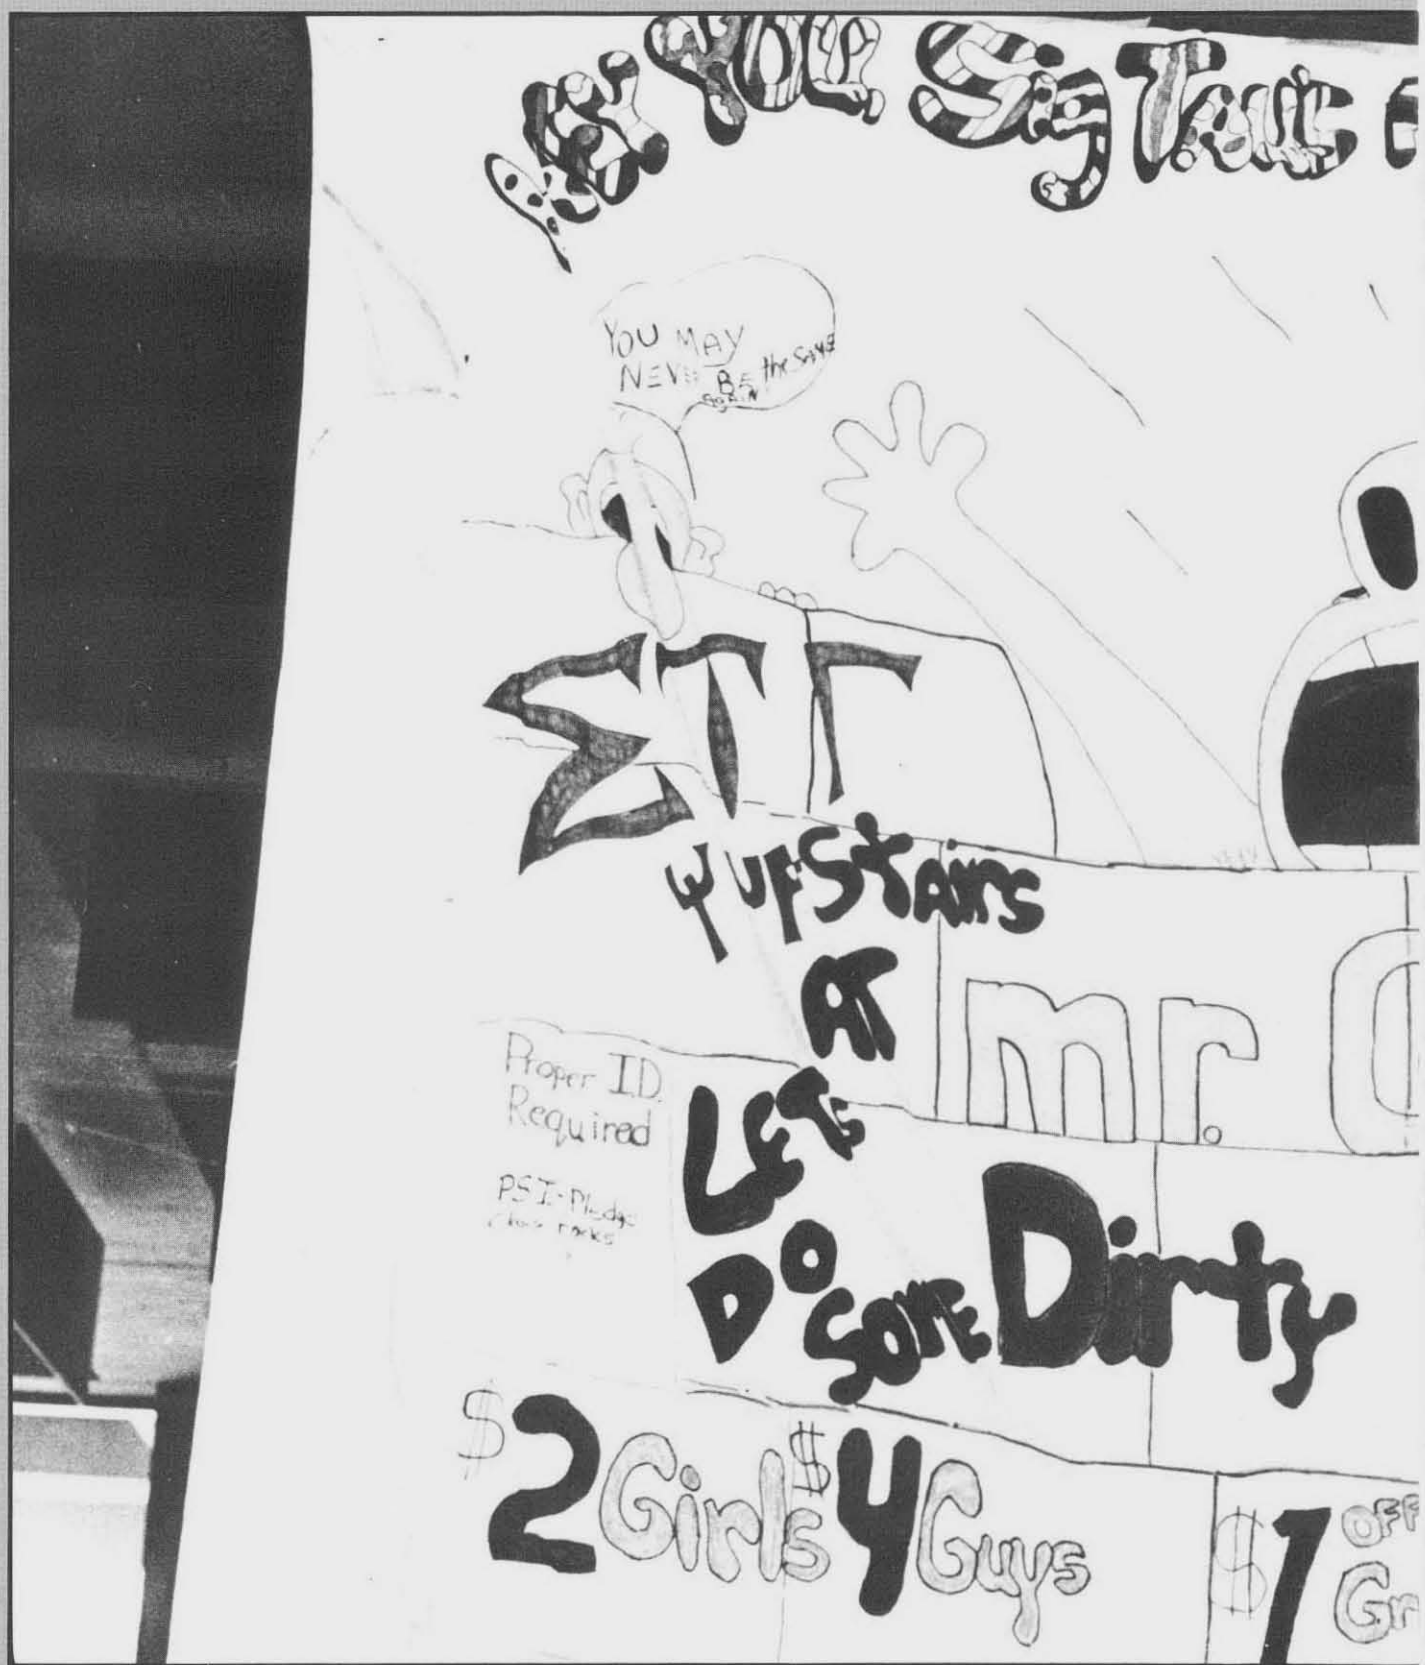 HEY YOU, Sig Tau's
YOU MAY
NEVER BE the SAME
AGAIN
ΣΤΓ
UPStAirs
AT
mr.
Proper I.D.
Required
PSI-Pledge
class rocks
LET's
DO SOME Dirty
$2 Girls $4 Guys
$1 OFF
Gr